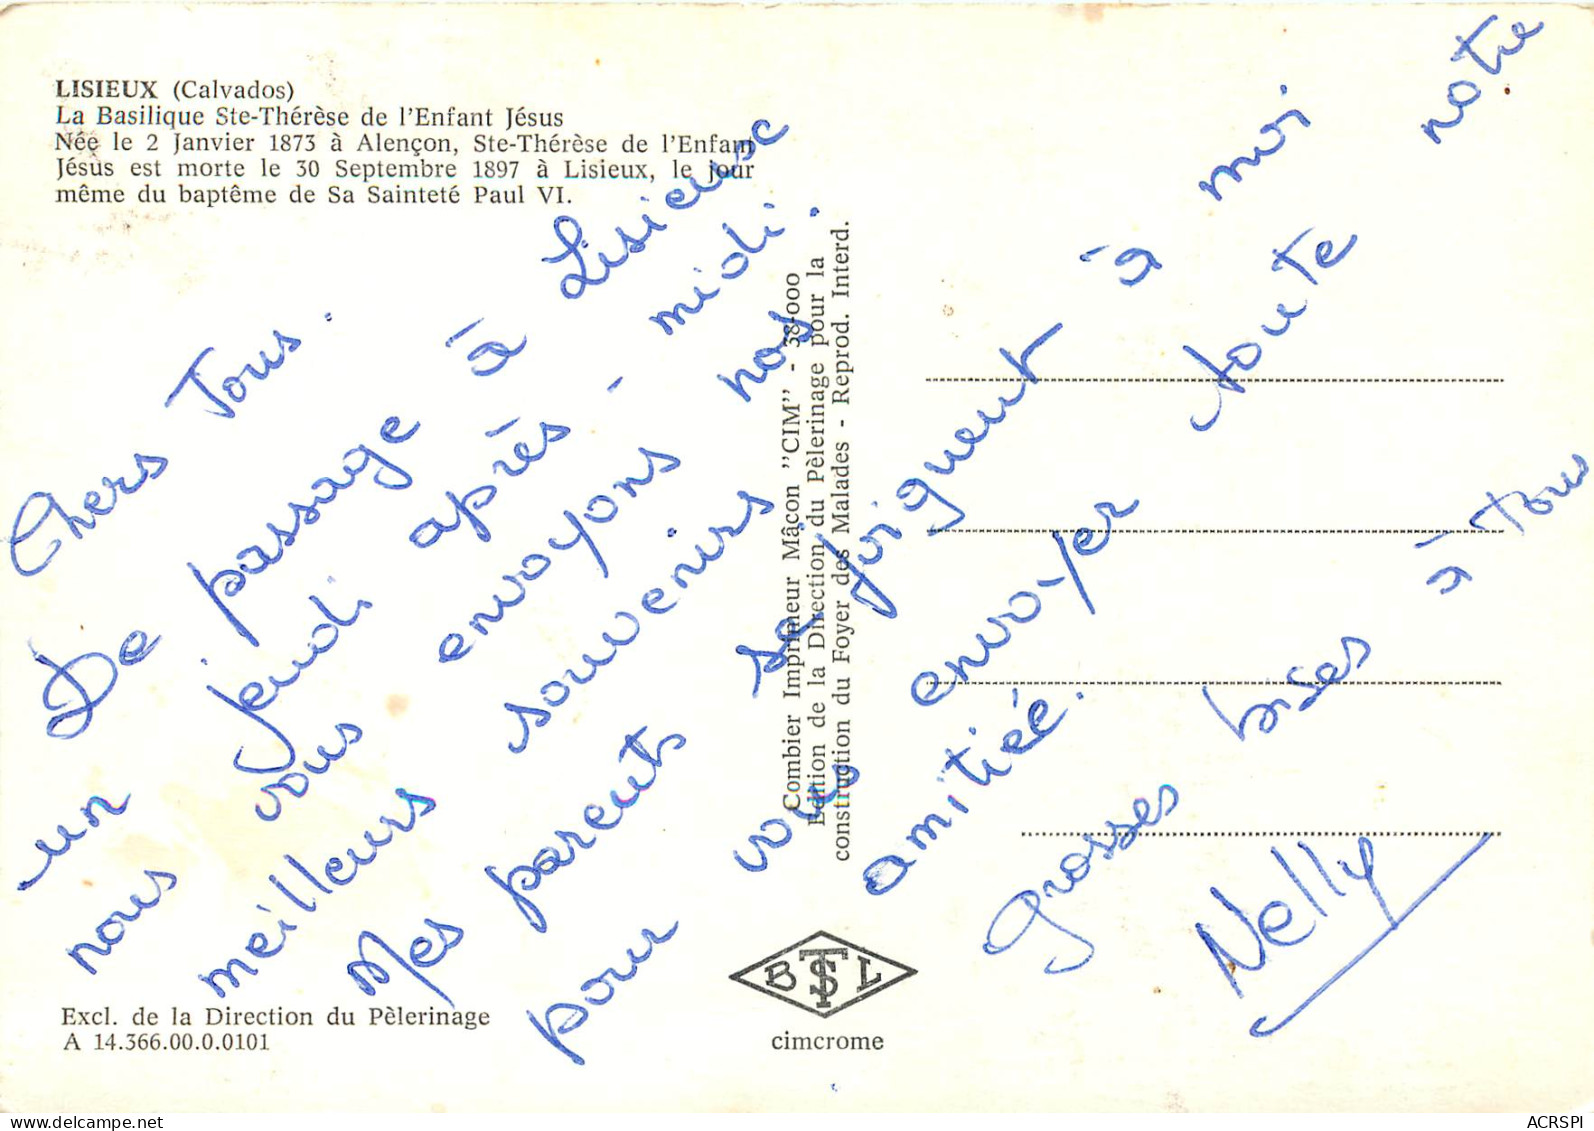 LISIEUX (Calvados)
La Basilique Ste-Thérèse de l'Enfant Jésus
Née le 2 Janvier 1873 à Alençon, Ste-Thérèse de l'Enfant
Jésus est morte le 30 Septembre 1897 à Lisieux, le jour
même du baptême de Sa Sainteté Paul VI.
Chers Tous.
De passage à Lisieuse
un jeudi après-midi.
nous vous envoyons nos
meilleurs souvenirs
Mes parents se joignent à moi
pour vous envoyer toute notre
amitiée.
grosses bises à Tous
Nelly
Combier Imprimeur Mâcon "CIM" - 38-000
Edition de la Direction du Pèlerinage pour la
construction du Foyer des Malades - Reprod. Interd.
Excl. de la Direction du Pèlerinage
A 14.366.00.0.0101
B TS L
cimcrome
ACRSPI